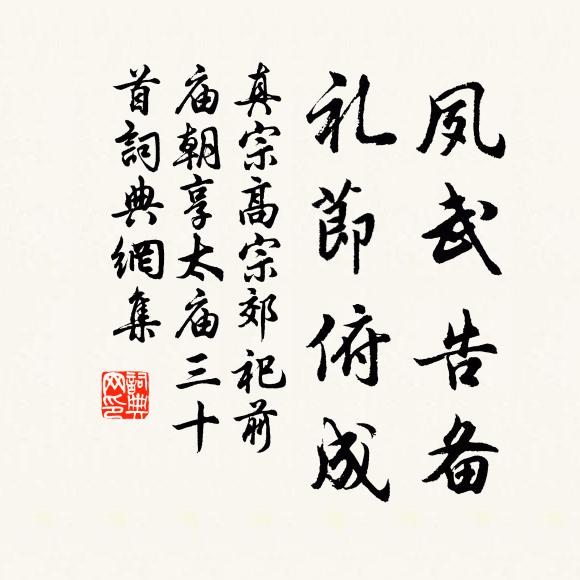 夙武告备
礼莭俯成
真宗髙宗郊祀前
庙朝享太庙三十
首詞典網集
詞典
网印